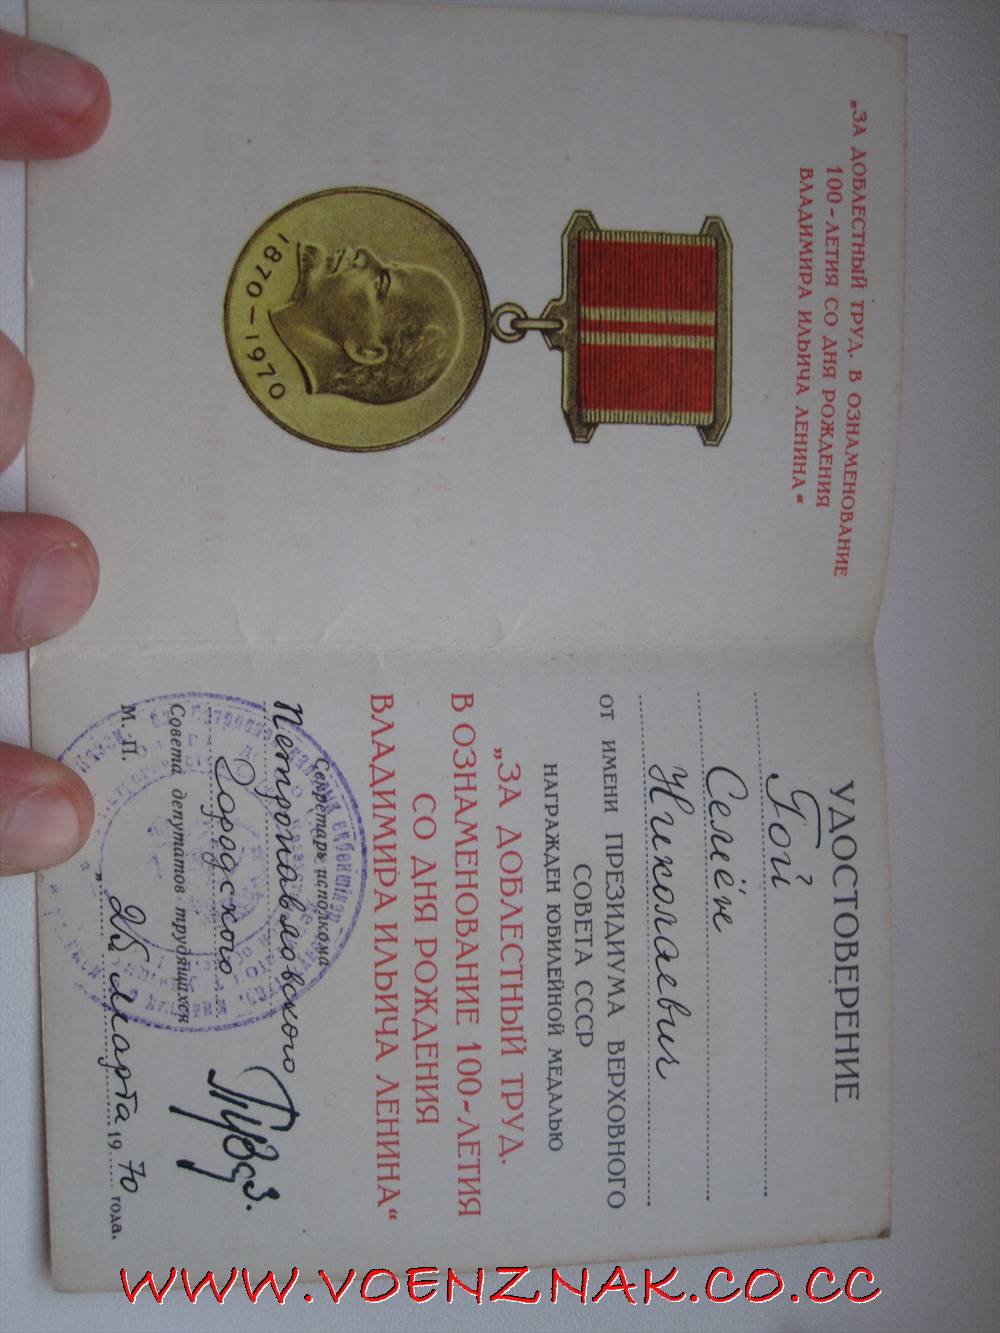 „ЗА ДОБЛЕСТНЫЙ ТРУД. В ОЗНАМЕНОВАНИЕ
100-ЛЕТИЯ СО ДНЯ РОЖДЕНИЯ
ВЛАДИМИРА ИЛЬИЧА ЛЕНИНА“
1870-1970
УДОСТОВЕРЕНИЕ
Гой
Семён
Николаевич
ОТ ИМЕНИ ПРЕЗИДИУМА ВЕРХОВНОГО
СОВЕТА СССР
НАГРАЖДЕН ЮБИЛЕЙНОЙ МЕДАЛЬЮ
„ЗА ДОБЛЕСТНЫЙ ТРУД.
В ОЗНАМЕНОВАНИЕ 100-ЛЕТИЯ
СО ДНЯ РОЖДЕНИЯ
ВЛАДИМИРА ИЛЬИЧА ЛЕНИНА“
Секретарь исполкома
Петропавловского
Городского
Совета депутатов трудящихся
М. П.
„26 марта 1970 года.
WWW.VOENZNAK.CO.CC